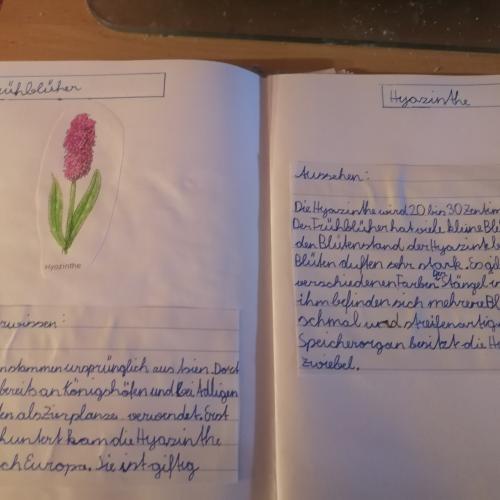 ühblüher
Hyazinthe
zuwissen:
nstammen ursprünglich aus Asien. Dort
bereits an Königshöfen und bei Adligen
en als Zierpflanze verwendet. Erst
hundert kam die Hyazinthe
ch Europa. Sie ist giftig
Hyazinthe
Aussehen:
Die Hyazinthe wird 20 bis 30 Zentim
Der Frühblüher hat viele kleine Blü
den Blütenstand der Hyazinth
Blüten duften sehr stark. Es gi
verschiedenen Farben. Der Stängel
ihm befinden sich mehrere Bl
schmal und streifenartig
Speicherorgan besitzt die H
zwiebel.